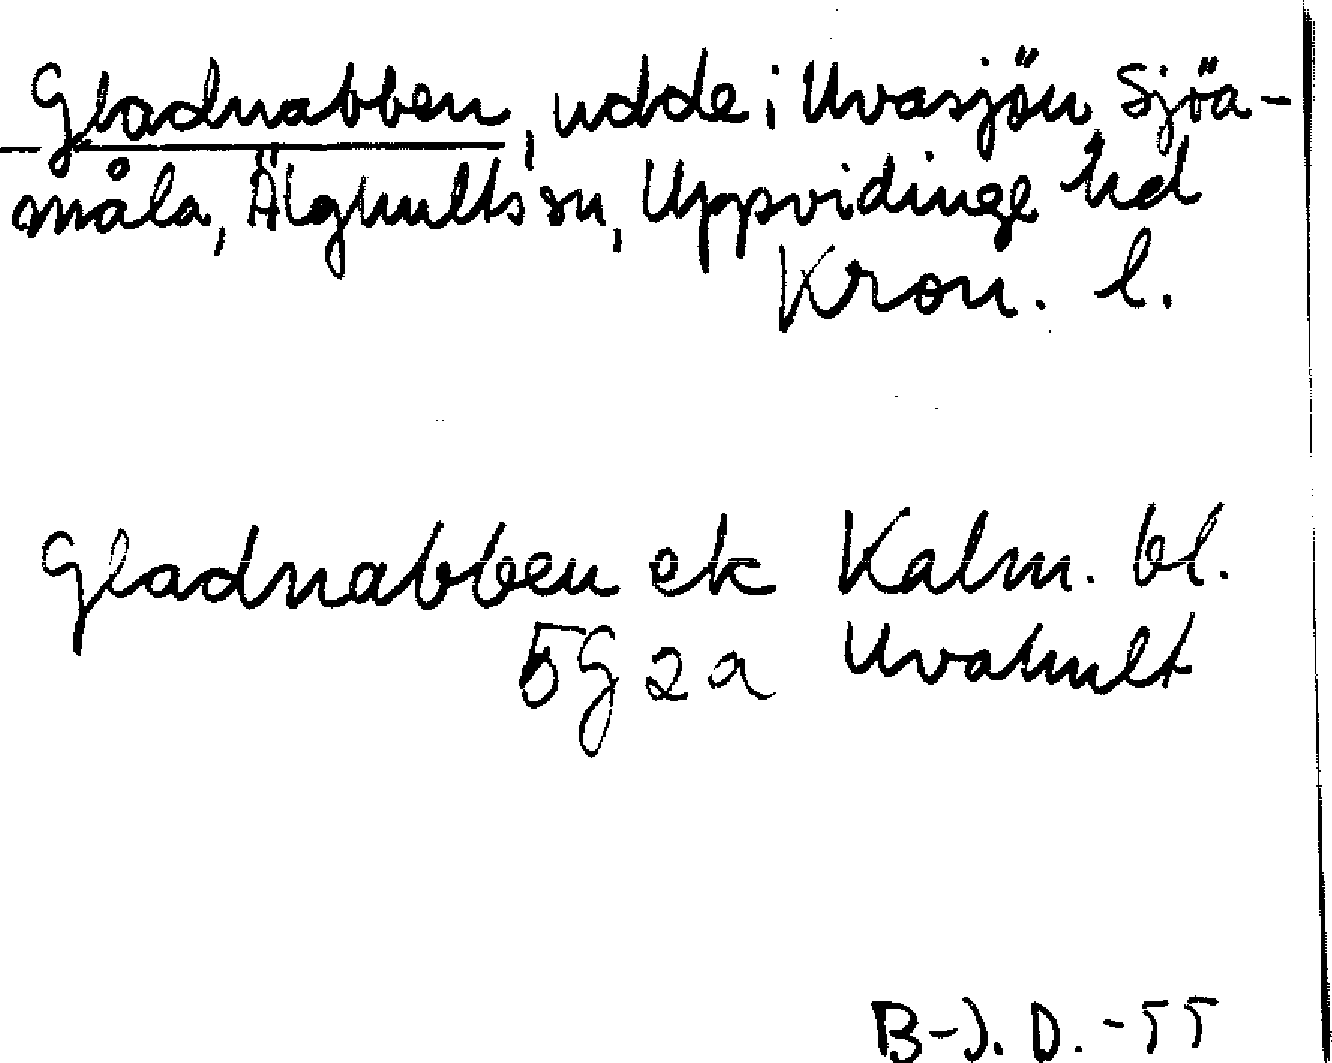 Gladnabben, udde i Uvasjön, Sjöa-
måla, Älghults sn, Uppvidinge hd
Kron. l.
Gladnabben ek Kalm. bl.
5G2a Uvahult
B-J. D. -55